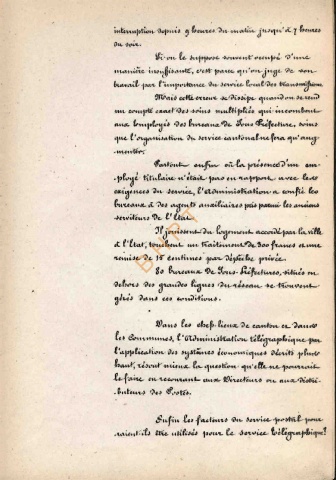 interruption depuis 9 heures du matin jusqu'à 7 heures
du soir.
Si on le suppose souvent occupé d'une
manière insuffisante, c'est parce qu'on juge de son
travail par l'importance du service local des transmissions
Mais cette erreur se dissipe quand on se rend
un compte exact des soins multipliés qui incombent
aux employés des bureaux de Sous-Préfecture, soins
que l'organisation du service cantonal ne fera qu'aug-
-menter.
Partout enfin où la présence d'un em-
ployé titulaire n'était pas en rapport avec les
exigences du service, l'Administration a confié les
bureaux à des agents auxiliaires pris parmi les anciens
serviteurs de l'État.
Ils jouissent du logement accordé par la ville
à l'État, touchent un traitement de 300 francs et une
remise de 15 centimes par dépêche privée.
80 bureaux de Sous-Préfectures, situés en
dehors des grandes lignes du réseau se trouvent
gérés dans ces conditions.
Dans les chefs-lieux de canton et dans
les Communes, l'Administration télégraphique par
l'application des systèmes économiques décrits plus
haut, résout mieux la question qu'elle ne pourrait
le faire en recourant aux Directeurs ou aux distri-
-buteurs des Postes.
Enfin les facteurs du service postal pour-
raient-ils être utilisés pour le service télégraphique?